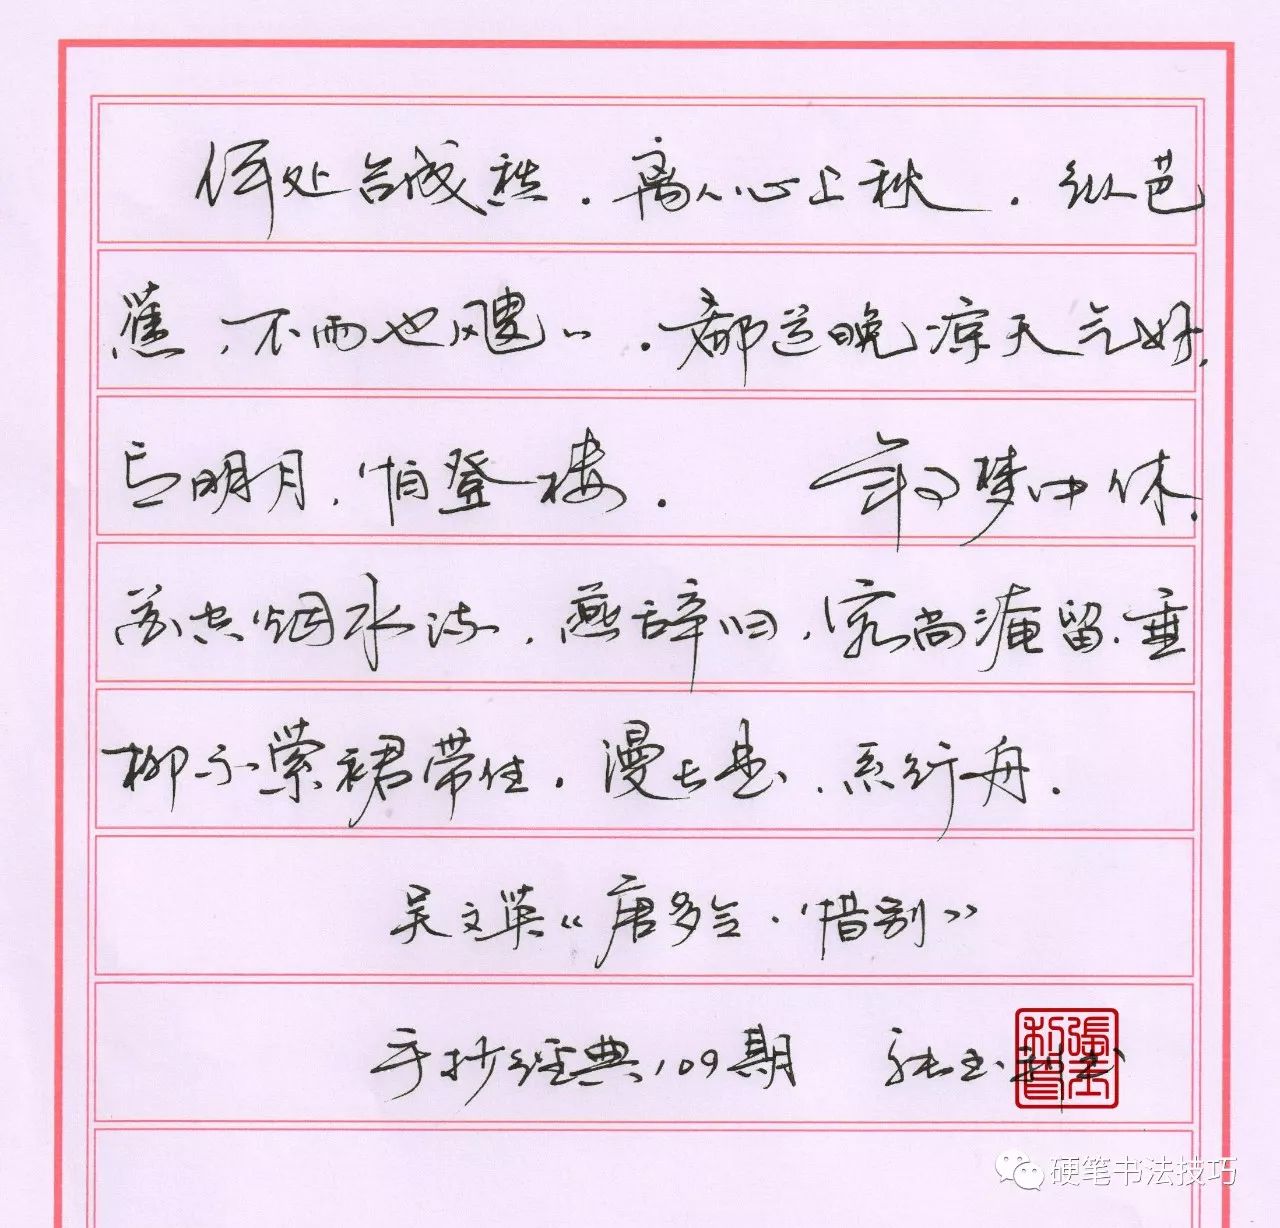 何处合成愁.离人心上秋.纵芭
蕉,不雨也飕〃.都道晚凉天气好,
有明月,怕登楼.　年事梦中休,
花空烟水流,燕辞归,客尚淹留.垂
柳不萦裙带住,漫长是,系行舟.
吴文英《唐多令·惜别》
手抄经典109期 张玉利书
硬笔书法技巧